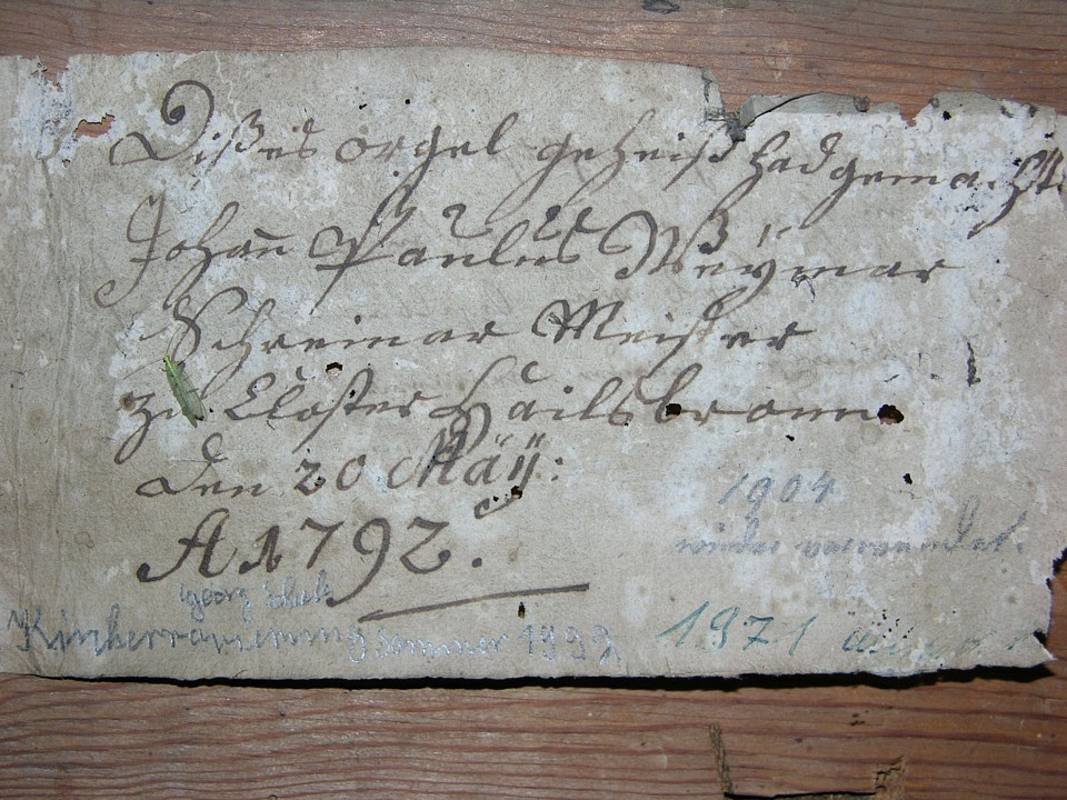 Dißes orgel geheiß had gemacht
Johan̄ Paulus Weymar
Schreinar Meister
zu Closter Hailsbronn
den 20 Maÿ:
A 1792.
1904
wieder verwendet.
Georg
Kirchenrenovierung Sommer 1992
1971